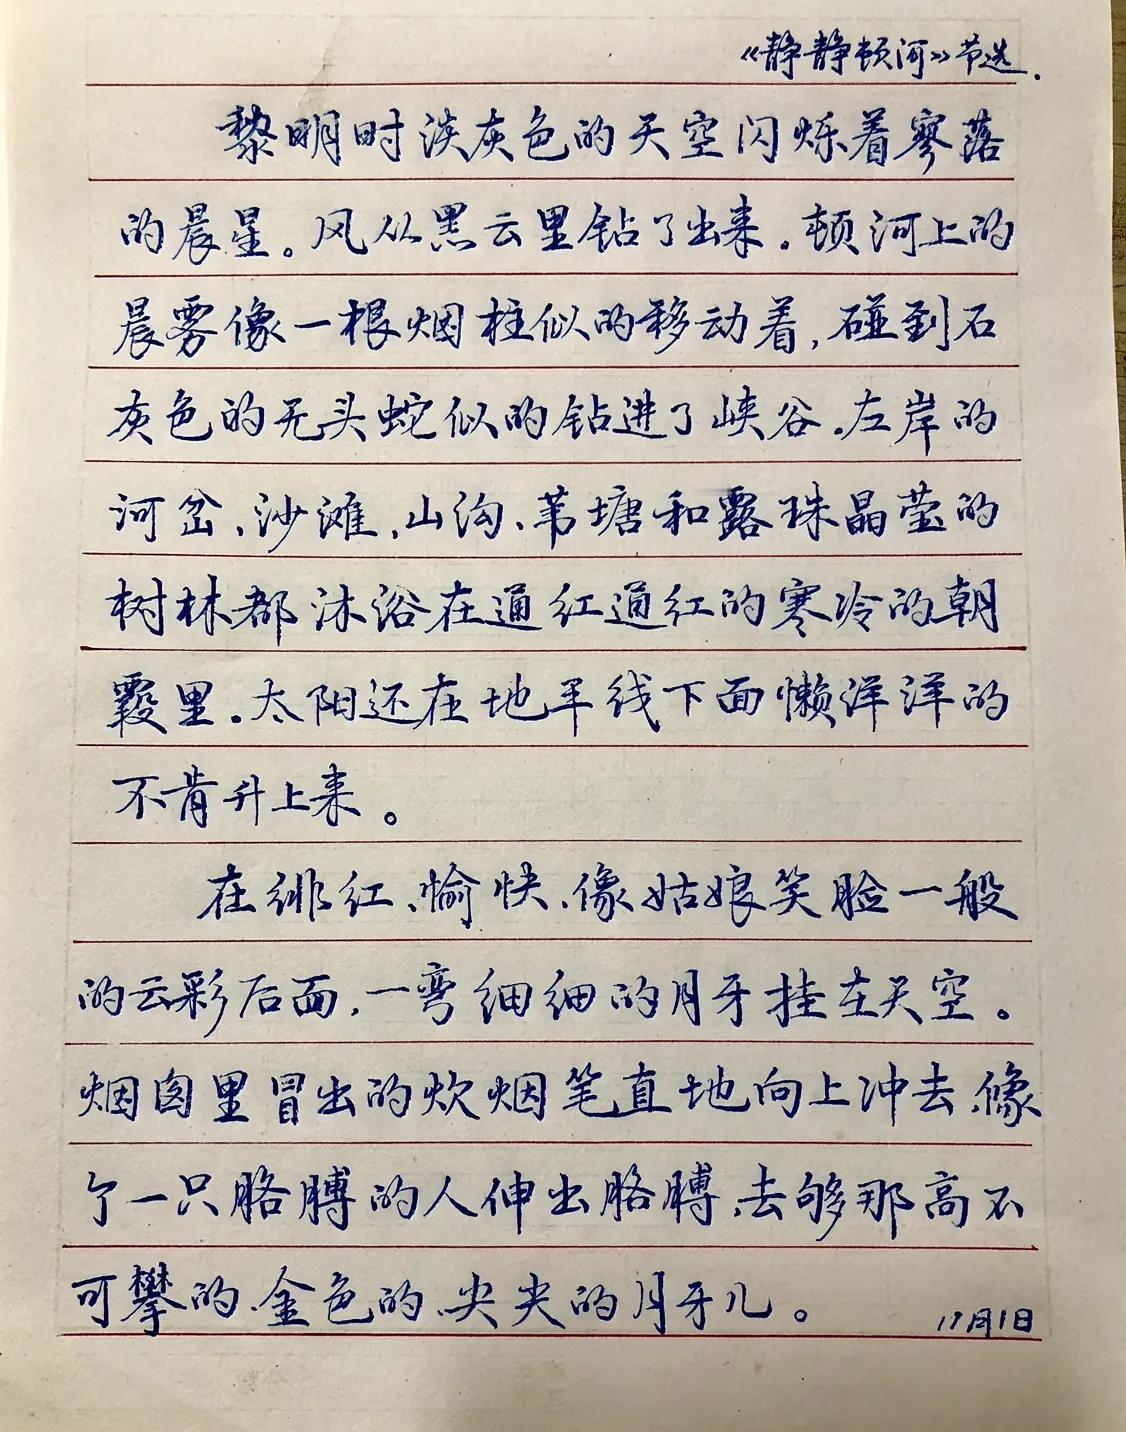 《静静顿河》节选.
黎明时淡灰色的天空闪烁着寥落
的晨星。风从黑云里钻了出来.顿河上的
晨雾像一根烟柱似的移动着,碰到石
灰色的无头蛇似的钻进了峡谷.左岸的
河岔、沙滩、山沟、苇塘和露珠晶莹的
树林都沐浴在通红通红的寒冷的朝
霞里。太阳还在地平线下面懒洋洋的
不肯升上来。
在绯红、愉快、像姑娘笑脸一般
的云彩后面,一弯细细的月牙挂在天空。
烟囱里冒出的炊烟笔直地向上冲去、像
个一只胳膊的人伸出胳膊、去够那高不
可攀的、金色的、尖尖的月牙儿。
11月1日